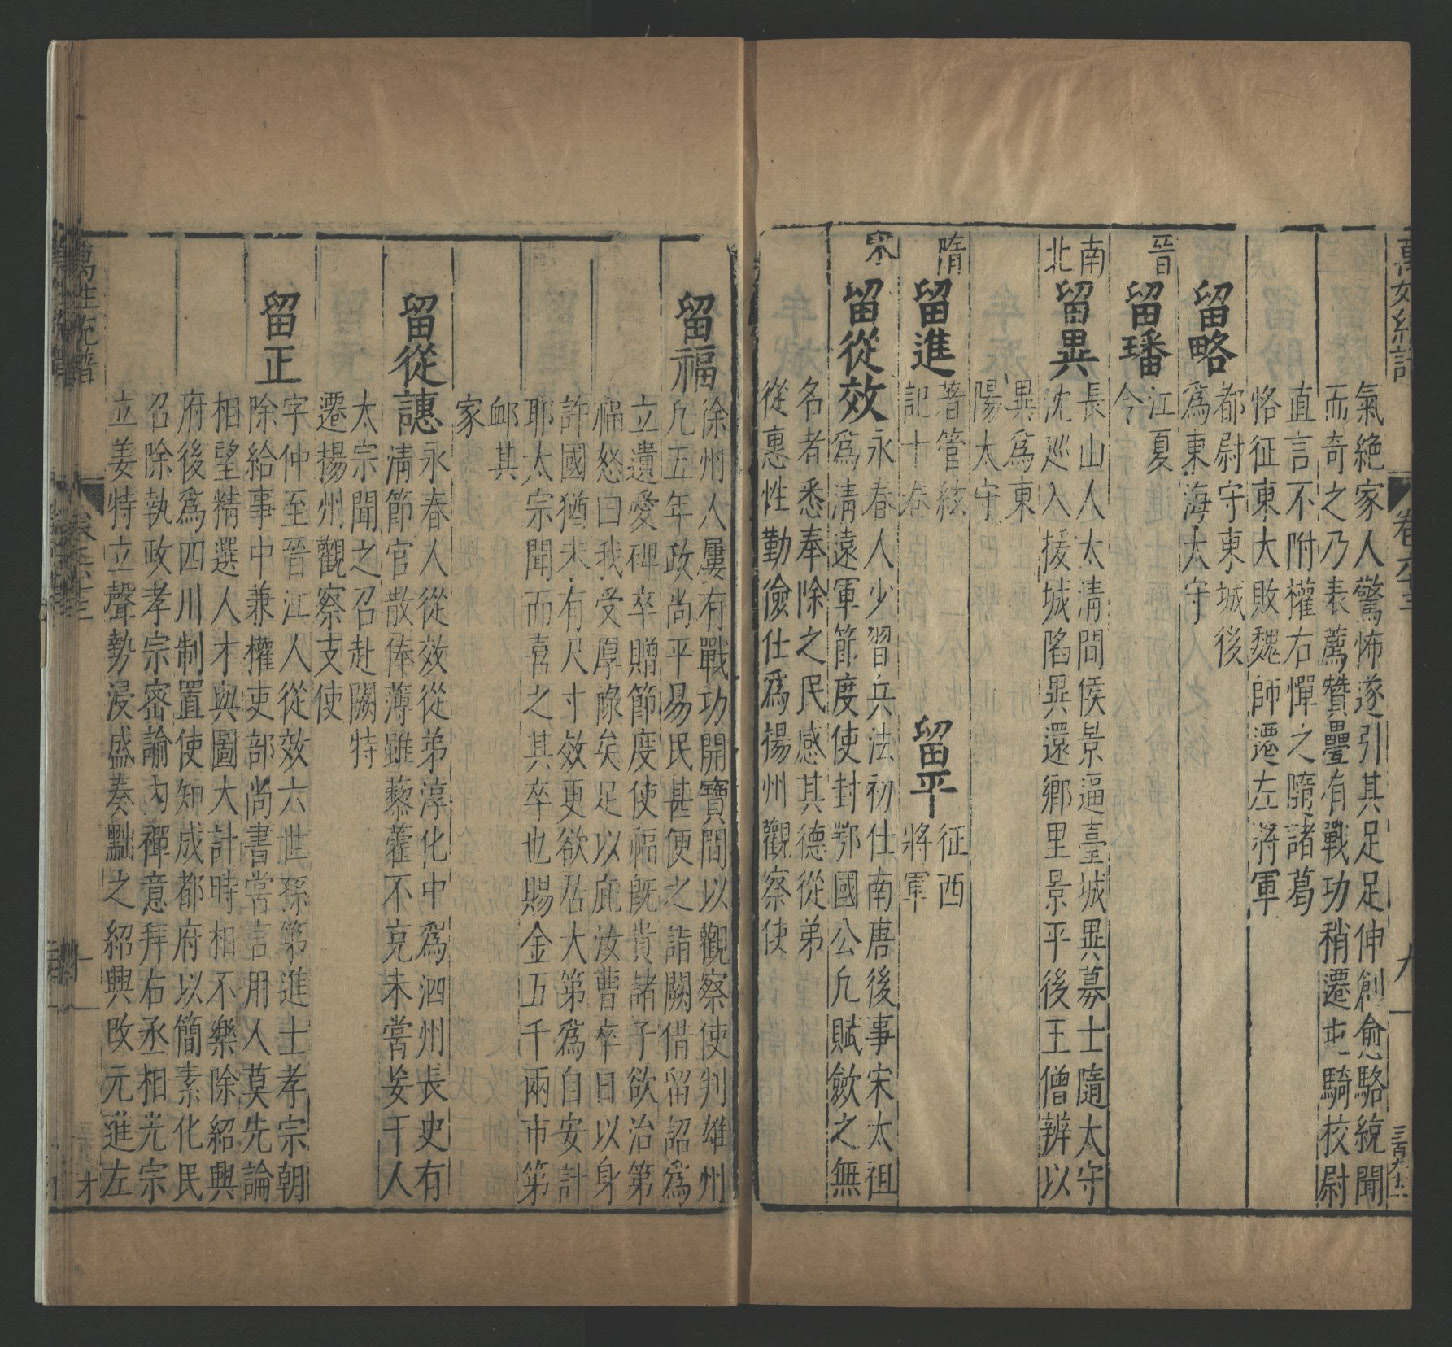 萬姓統譜
卷六十三
九
氣絶家人驚怖遂引其足足伸創愈駱統聞
而奇之乃表薦贊璺有戰功稍遷屯騎校尉
直言不附權右憚之隨諸葛
恪征東大敗魏師遷左將軍
留略
都尉守東城後
爲東海太守
晉
留璠
江夏
令
南北
留異
長山人太清間侯景逼臺城異募士隨太守
沈巡入援城陷異還鄉里景平後王僧辨以
異爲東
陽太守
隋
留進
著管絃
記十卷
留平
征西
將軍
宋
留從效
永春人少習兵法初仕南唐後事宋太祖
爲清遠軍節度使封鄂國公凢賦斂之無
名者悉奉除之民感其德從弟
從惠性勤儉仕爲揚州觀察使
留福
徐州人屢有戰功開寶間以觀察使判雄州
凢五年政尚平易民甚便之詣闕借留詔爲
立遺愛碑卒贈節度使福既貴諸子欲治第
福怒曰我受厚祿矣足以庇汝曹卒日以身
許國猶未有尺寸效更欲居大第爲自安計
耶太宗聞而喜之其卒也賜金五千兩市第
邮其
家
留從譓
永春人從效從弟淳化中爲泗州長史有
清節官散俸薄雖藜藿不克未嘗妄干人
太宗聞之召赴闕特
遷揚州觀察支使
留正
字仲至晉江人從效六世孫第進士孝宗朝
除給事中兼權吏部尚書嘗言用人莫先論
相望精選人才與圖大計時相不樂除紹興
府後爲四川制置使知成都府以簡素化民
召除執政孝宗密諭內禪意拜右丞相光宗
立姜特立聲勢浸盛奏黜之紹興改元進左